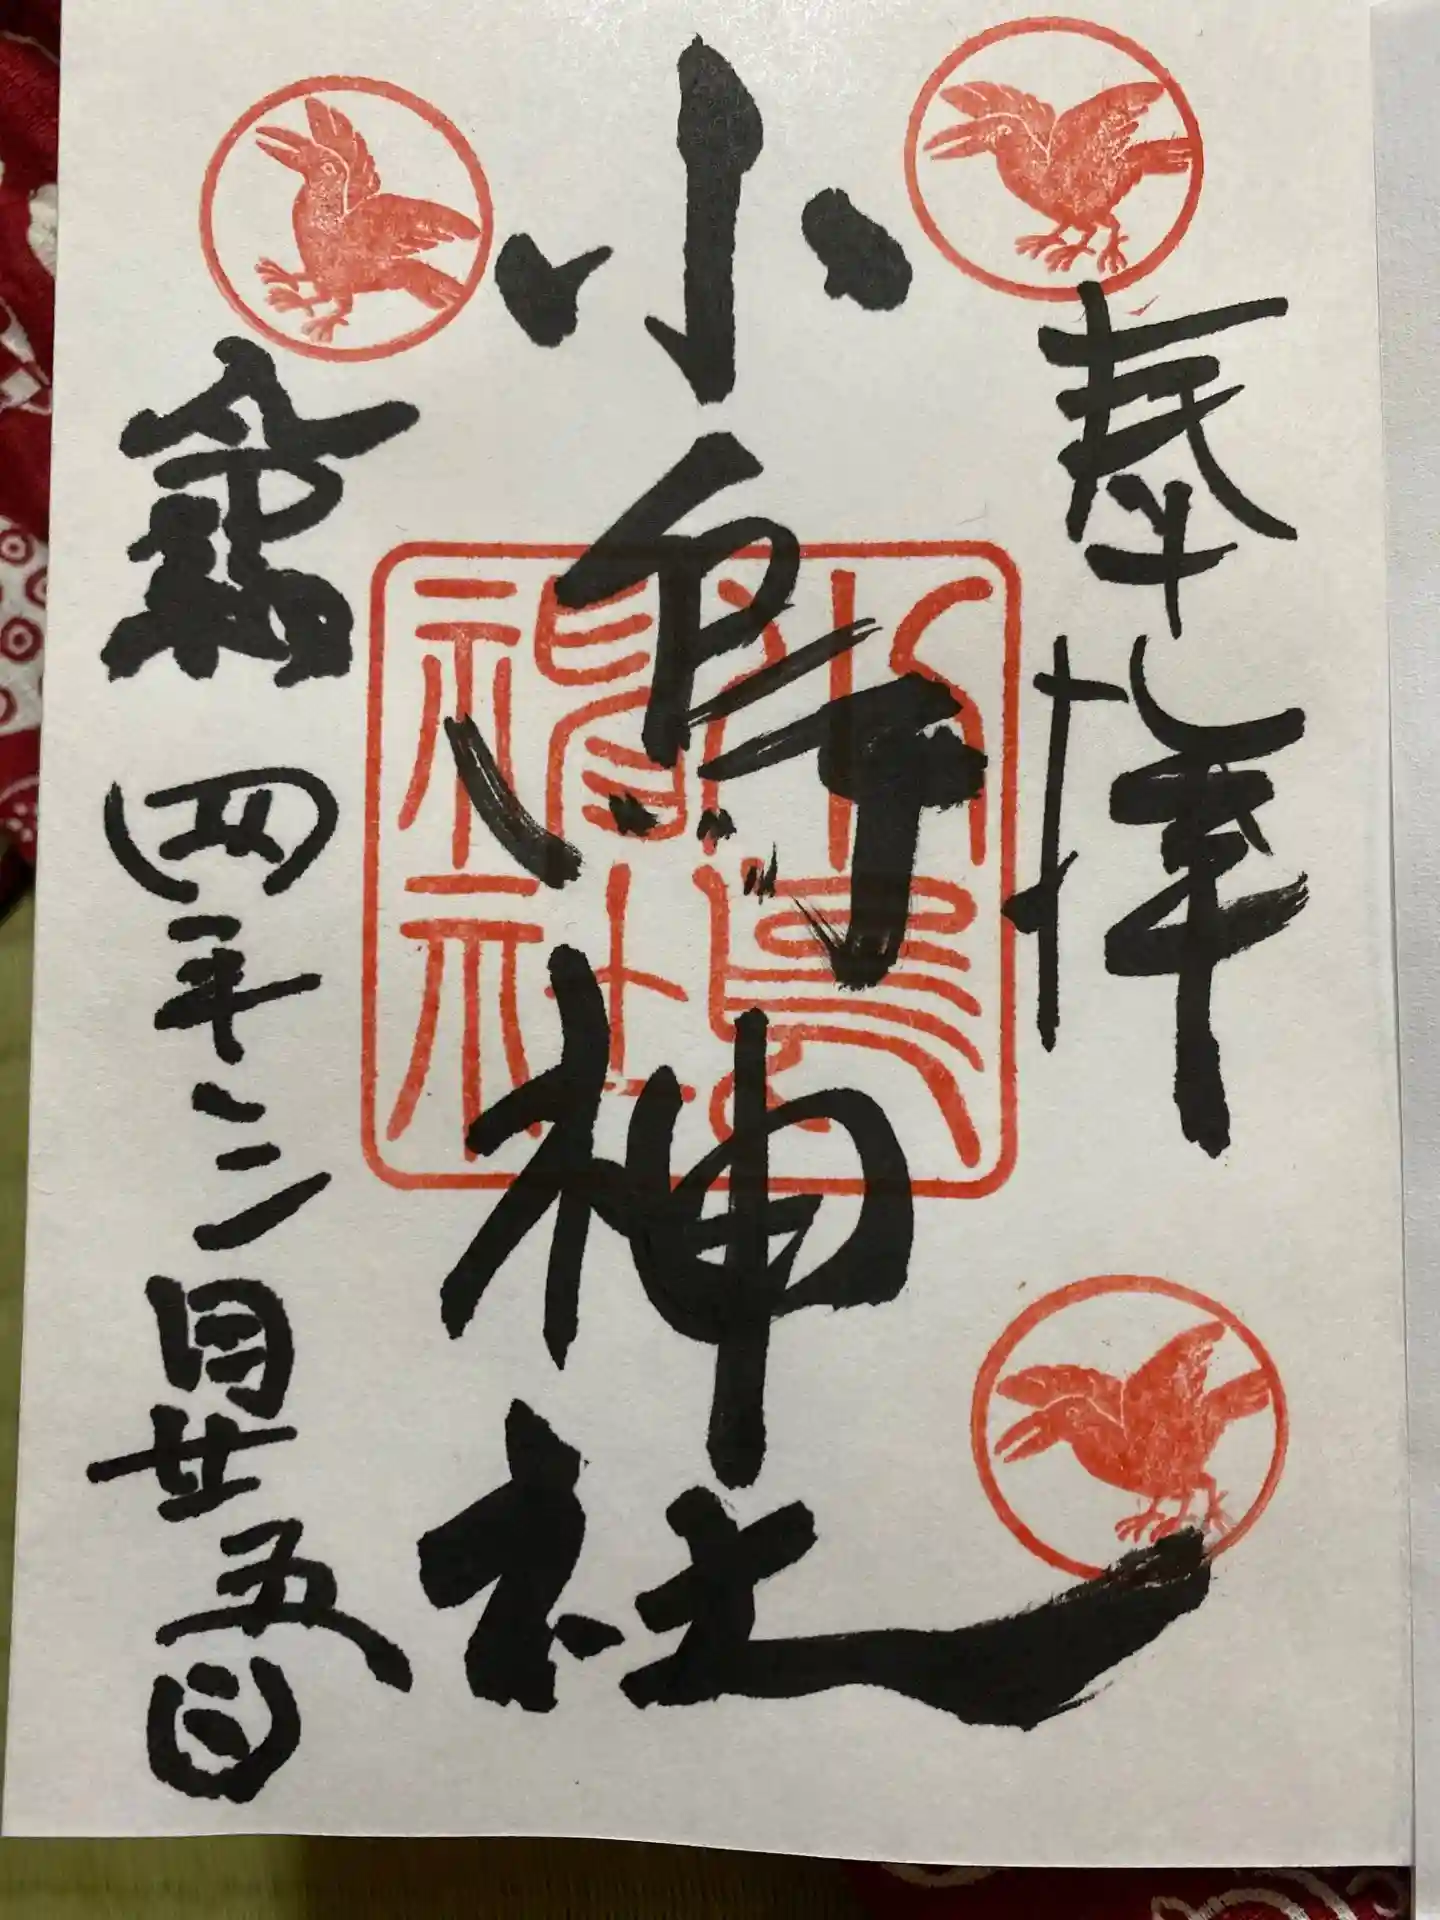 奉拝
小烏神社
令和四年三月廿五日
小烏神社